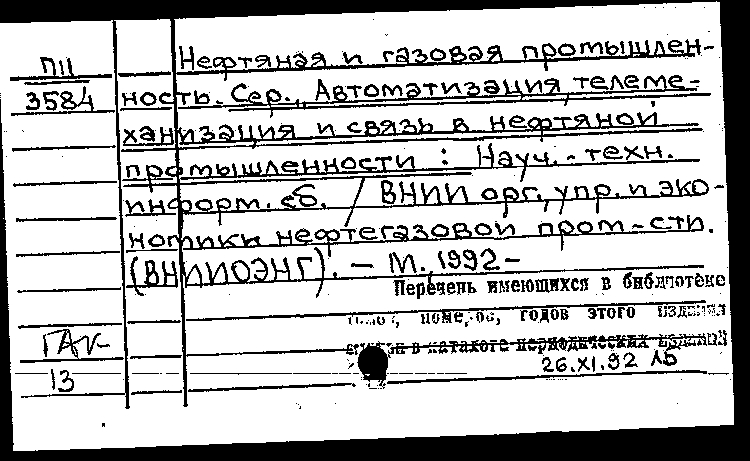 П11
3584
Нефтяная и газовая промышлен-
ность. Сер., Автоматизация, телеме-
ханизация и связь в нефтяной
промышленности : Науч.-техн.
информ. сб. / ВНИИ орг., упр. и эко-
номики нефтегазовой пром-сти.
(ВНИИОЭНГ). — М., 1992 -
Перечень имеющихся в библиотеке
томов, номеров, годов этого издания
в каталоге периодических изданий
26.XI.92 ЛБ
ГАК
13